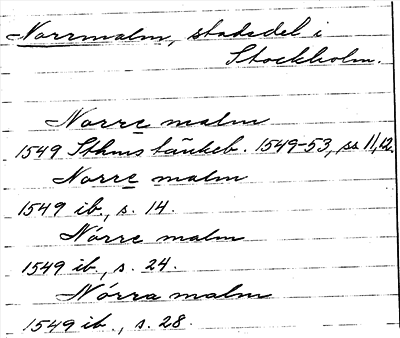 Norrmalm, stadsdel i
Stockholm.
Norre malm
1549 Sthms tänkeb. 1549-53, ss 11, 12.
Norre malm
1549 ib., s. 14.
Nórre malm
1549 ib., s. 24.
Nórra malm
1549 ib., s. 28.